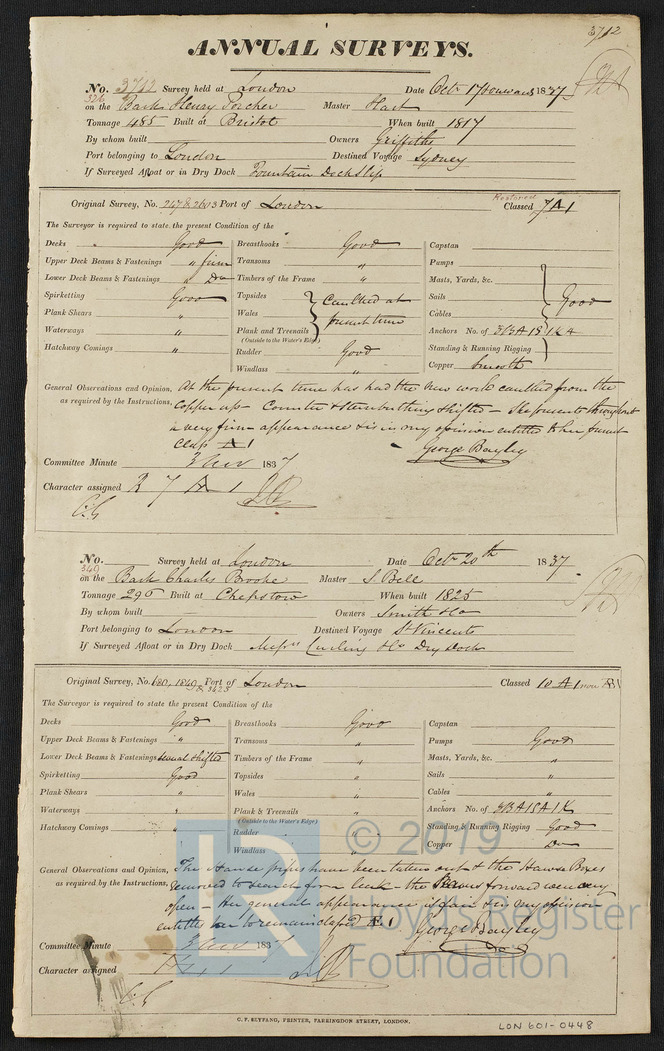 3712
ANNUAL SURVEYS.
No. 3712 Survey held at London Date Octr 17 & onwards 1837
326
on the Bark Henry Porcher Master Hart
Tonnage 485 Built at Bristol When built 1817
By whom built Owners Griffiths
Port belonging to London Destined Voyage Sydney
If Surveyed Afloat or in Dry Dock Fountain Dock & Slip
Original Survey, No. Port of London Restored Classed 7 A 1
The Surveyor is required to state the present Condition of the
Decks Good Breasthooks Good Capstan
Upper Deck Beams & Fastenings " firm Transoms " Pumps
Lower Deck Beams & Fastenings " Do Timbers of the Frame " Masts, Yards, &c.
Spirketting Good Topsides Caulked at Sails Good
Plank Shears " Wales present time Cables
Waterways " Plank and Treenails Anchors No. of 3 B A 1 S 1 K
(Outside to the Water's Edge)
Hatchway Comings " Rudder Good Standing & Running Rigging
Windlass " Copper Smooth
General Observations and Opinion, At the present time has had the new work caulked from the
as required by the Instructions, Copper up - Counter & Sternbutting shifted - She presents throughout
a very firm appearance & is in my opinion entitled to her present
Class A 1
George Bayley
Committee Minute 3 Nov 1837
Character assigned R 7 A 1
C.G
No. Survey held at London Date Octr 20th 1837
340
on the Bark Charles Brooke Master S. Bell
Tonnage 296 Built at Chepstow When built 1825
By whom built Owners Smith & Co
Port belonging to London Destined Voyage St Vincents
If Surveyed Afloat or in Dry Dock Messrs Curling & Co Dry Dock
Original Survey, No. 680, 1849 & 3423 Port of London Classed 10 A 1 now Æ 1
The Surveyor is required to state the present Condition of the
Decks Good Breasthooks Good Capstan
Upper Deck Beams & Fastenings " Transoms " Pumps Good
Lower Deck Beams & Fastenings shifted Timbers of the Frame " Masts, Yards, &c. "
Spirketting Good Topsides " Sails "
Plank Shears " Wales " Cables "
Waterways " Plank & Treenails " Anchors No. of 3 B A 1 S A 1 K
(Outside to the Water's Edge)
Hatchway Comings " Rudder " Standing & Running Rigging Good
Windlass " Copper Do
General Observations and Opinion, The Hawse pipes have been taken out & the Hawse Boxes
as required by the Instructions, removed to search for a leak - the Seams forward were very
open - Her general appearance is fair & is in my opinion
entitled to be remain classed Æ 1
George Bayley
Committee Minute 3 Nov 1837
Character assigned Æ 1
C.G
© 2019
Lloyd's Register
Foundation
LR
C. F. SEYFANG, PRINTER, FARRINGDON STREET, LONDON.
LON 601-0448